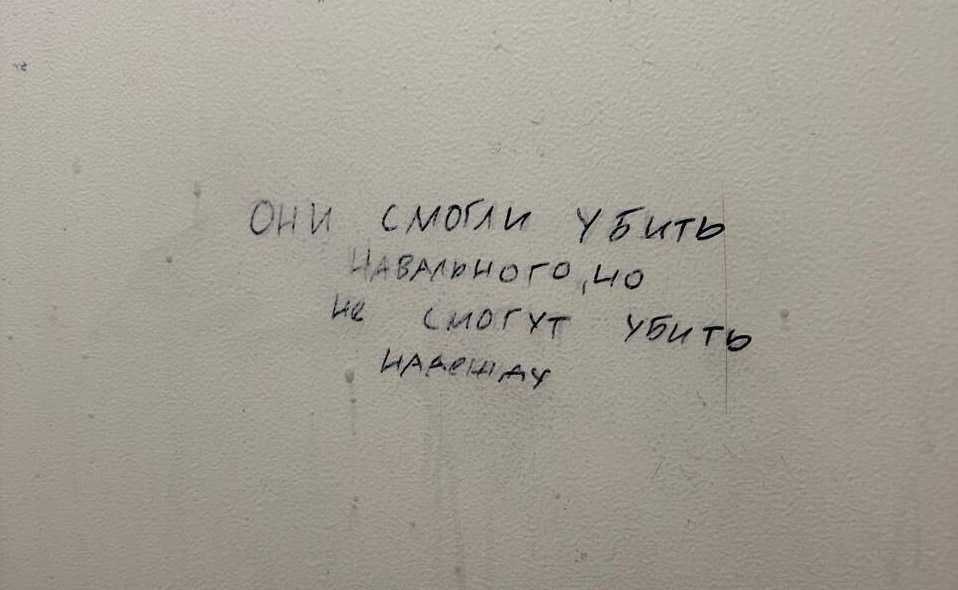 ОНИ СМОГЛИ УБИТЬ
НАВАЛЬНОГО, НО
Не СМОГУТ УБИТЬ
НАДеЖДУ